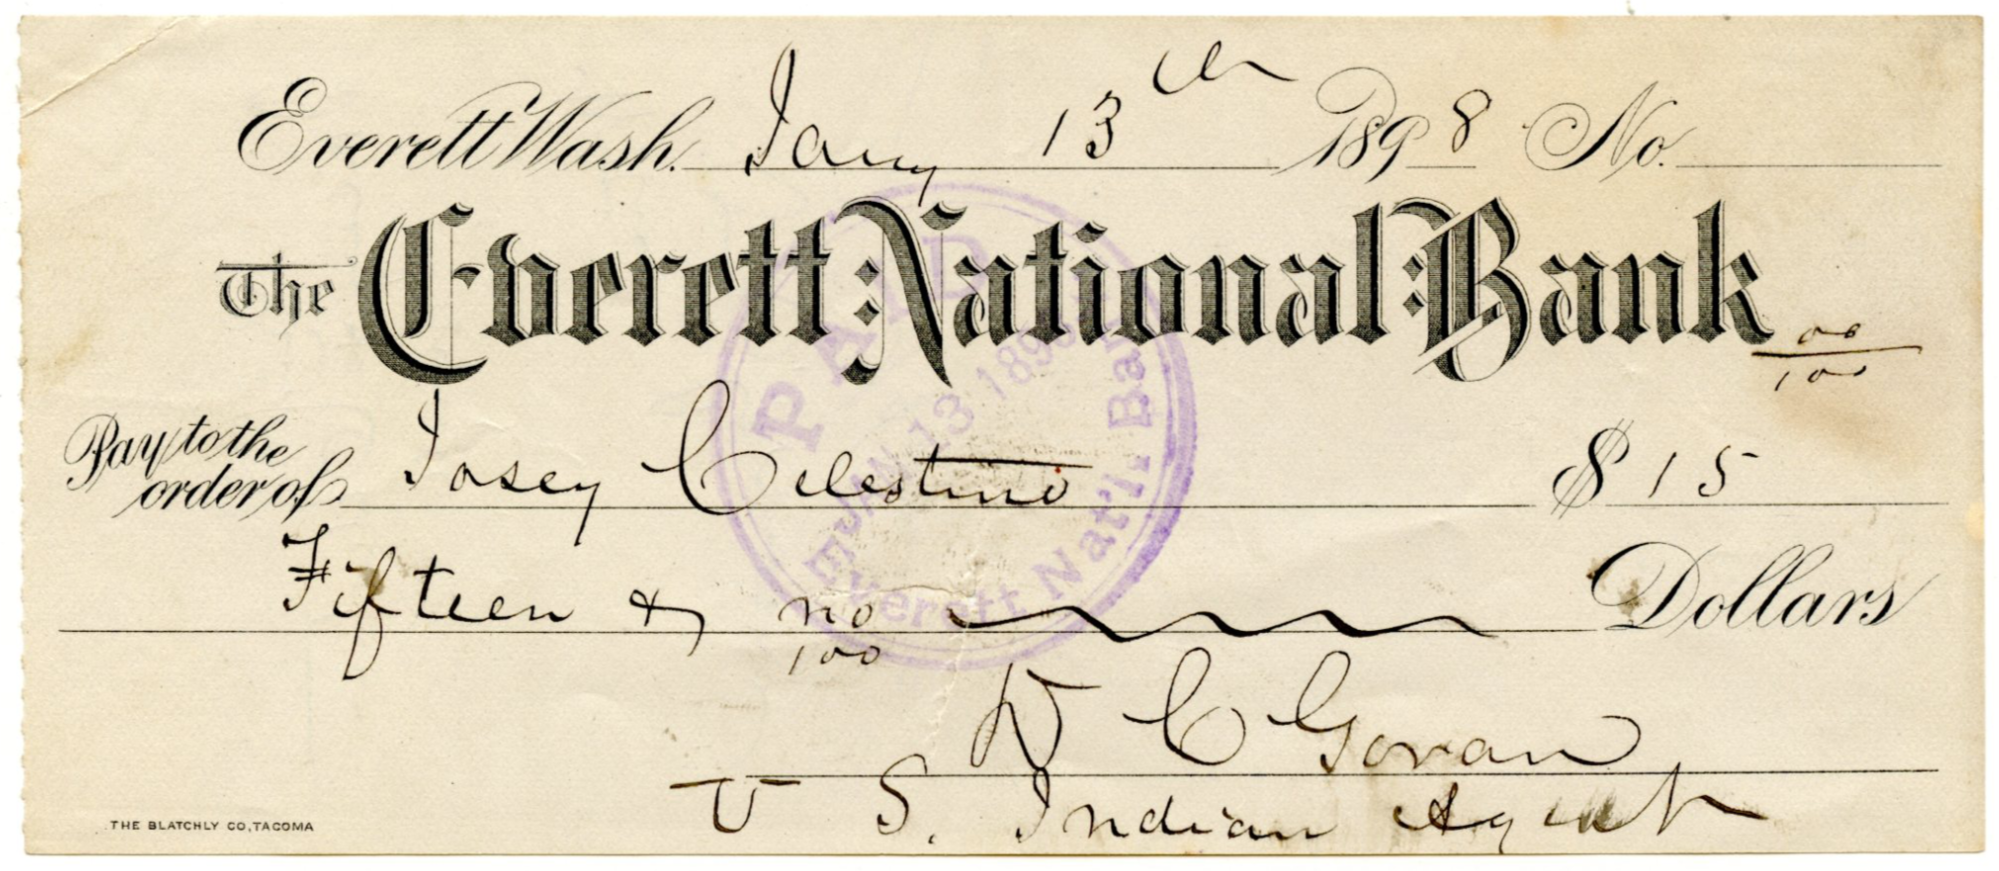 Everett Wash. Jany 13th 1898 No.
The Everett National Bank
Pay to the order of Josey Celestino $ 15 00/100
Fifteen & no/100 Dollars
D C Govan
U S. Indian Agent
THE BLATCHLY CO, TACOMA
PAID
JAN 13 1898
Everett Nat'l. Bank